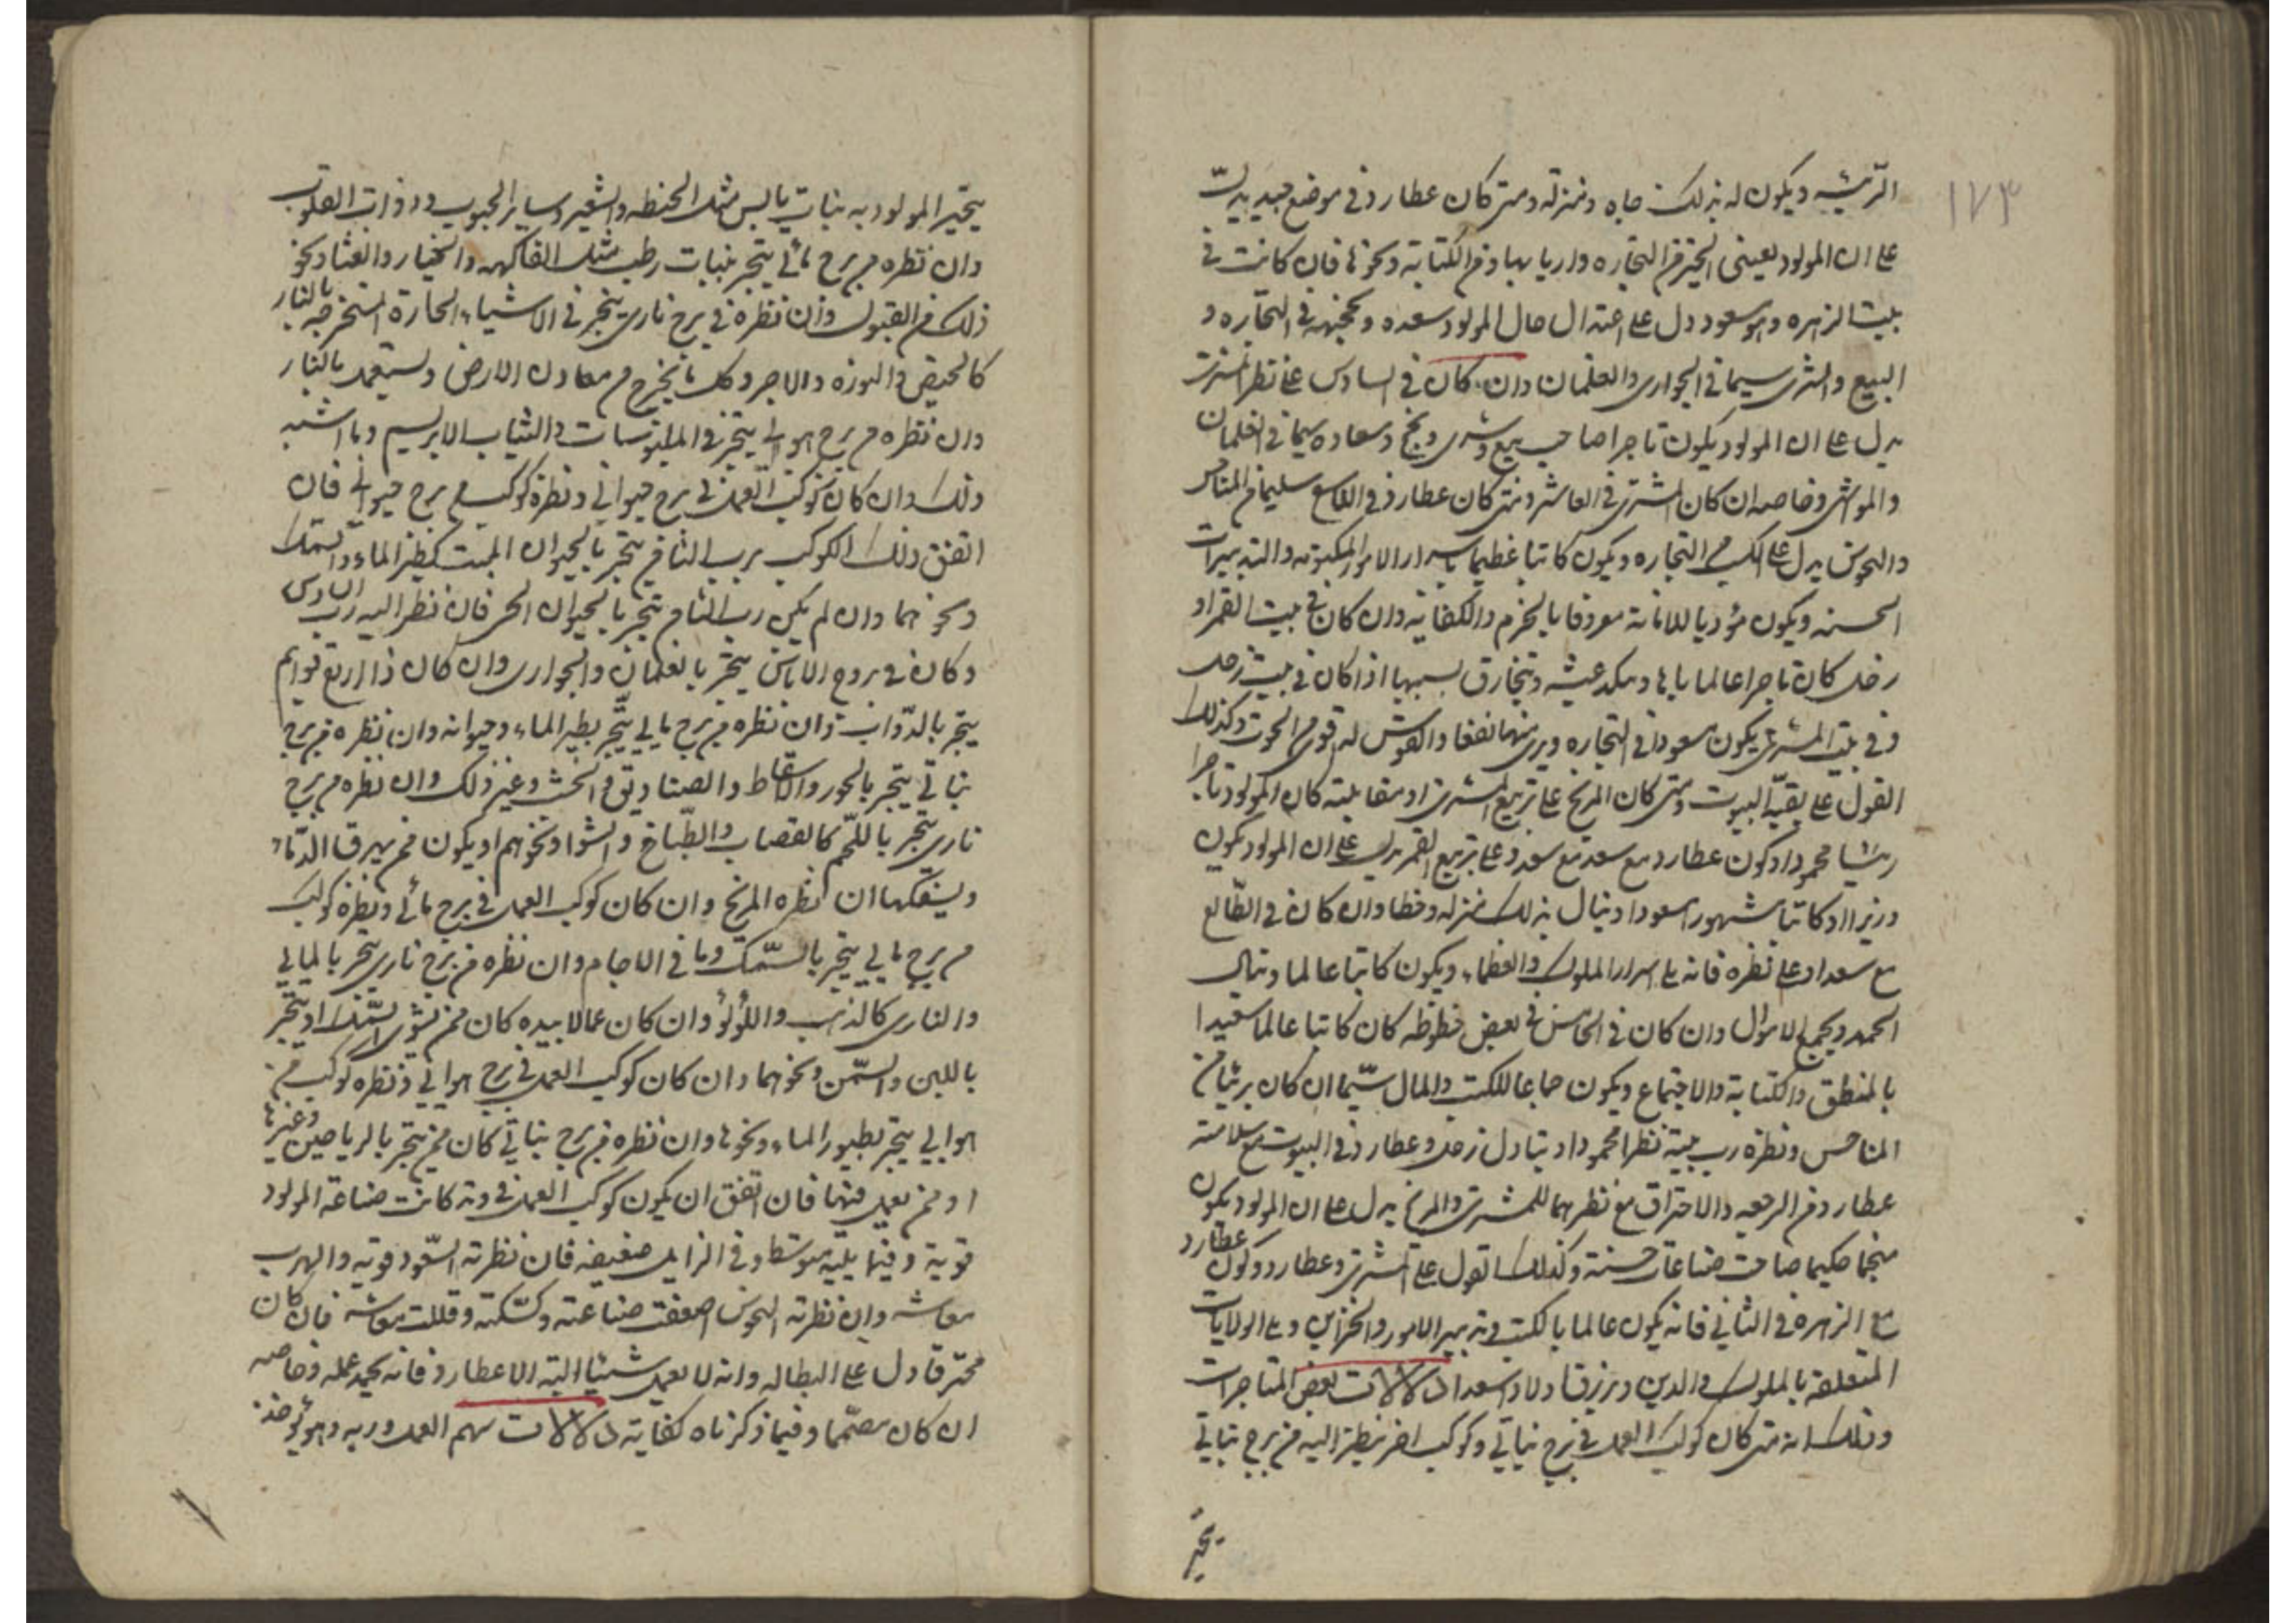 ١٧٣
الرئيسه ويكون له بذلك جاه ومنزله ومتى كان عطارد في موضع جيد يدل
على ان المولود يعيش التجاره واربابها ومن الكتابة ونحوها فان كانت في
بيت الزهره وهو مسعود دل على اعتدال حال المولود وسعده و في التجاره و
البيع والشرى سيما في الجوارى والغلمان وان كان في السادس على نظر المشترى
يدل على ان المولود يكون تاجرا صاحب بيع وشرى ونجح وسعاده سيما في الغلمان
والمواشى وخاصه ان كان المشترى في العاشر ومتى كان عطارد في التاسع سليما من المناحس
والنحوس يدل على الكسب من التجاره ويكون كاتبا عظيما باسرار الامور المكتوبه والتدبيرات
الحسنه ويكون مؤديا للامانة معروفا بالحزم والكفاية وان كان في بيت القمر او
زحل كان تاجرا عالما بها ونكد عيشه بسببها اذا كان في بيت زحل
وفي بيت المشترى يكون مسعودا في التجاره ويرى منها نفعا والقوس له اقوى من الحوت وكذلك
القول على بقيّة البيوت ومتى كان المريخ على تربيع المشترى او مقابلته كان المولود تاجرا
رئيسا محمودا وكون عطارد مع سعد مع سعد وعلى تربيع القمر يدل على ان المولود يكون
وزيرا او كاتبا مشهورا مسعودا وينال بذلك منزله وحظا وان كان في الطّالع
مع سعد او على نظره فانه على اسرار الملوك والعظماء ويكون كاتبا عالما وينال
الحمد ويجمع الاموال وان كان في الخامس في بعض حظوظه كان كاتبا عالما سعيدا
بالمنطق والكتابة والاجتماع ويكون جماعا للكتب والمال سيّما ان كان بريئا من
المناحس ونظره رب بيته نظرا محمودا وتبادل زحل وعطارد في البيوت مع سلامة
عطارد من الرجعه والاحتراق مع نظرهما للمشترى والمريخ يدل على ان المولود يكون
منجما حكيما صاحب صناعات حسنة وكذلك القول على المشترى وعطارد وكون عطارد
مع الزهرة في الثاني فانه يكون عالما بالكتب وتدبير الامور والخزاين وعلى الولايات
المتعلقه بالملوك والدين ويرزق اولاد اسعدا دلالات بعض المتاجرات
وذلك انه متى كان كوكب العمل في برج نباتي وكوكب اخر ينظر اليه من برج نباتي
يتجر
يتّجر المولود به بنبات يابس مثل الحنطه والشعير وساير الحبوب وذوات القلوب
وان نظره من برج مائي يتجر بنبات رطب مثل الفاكهه والخيار والقثا ونحو
ذلك من البقول وان نظره في برج ناري يتجر في الاشياء الحارة المستخرجه بالنار
كالجص والنوره والاجر وكل ما يخرج من معادن الارض ويستعمل بالنار
وان نظره من برج هوائي يتجر في الملبوسات والثياب الابريسم وما اشبه
ذلك وان كان كوكب العمل في برج حيواني ونظره كوكب من برج حيواني فان
اتفق ذلك الكوكب برب الثامن يتجر بالحيوان الميت كطير الماء والسمك
ونحوهما وان لم يكن رب الثامن يتجر بالحيوان الحي فان نظر اليه رب السادس
وكان في بروج الانس يتجر بالغلمان والجوارى وان كان ذا اربع قوايم
يتجر بالدّواب وان نظره من برج مايي يتّجر بطير الماء وحيوانه وان نظره من برج
نباتي يتجر بالحور والاسقاط والصناديق والخشب وغير ذلك وان نظره من برج
ناري يتجر باللّحم كالقصاب والطبّاخ والشوا ونحوهم او يكون ممن يهرق الدّماء
ويسفكها ان نظره المريخ وان كان كوكب العمل في برج مائي ونظره كوكب
من برج مايي يتجر بالسّمك وما في الاجام وان نظره من برج ناري يتجر بالمايي
والنارى كالذهب واللؤلؤ وان كان عمالا بيده كان ممن يشوى السّمك او يتجر
باللبن والسّمن ونحوهما وان كان كوكب العمل في برج هوائي ونظره كوكب من
هوايي يتجر بطيور الماء ونحوها وان نظره من برج نباتي كان ممن يتجر بالرياحين وغيرها
او ممن يعمل منها فان اتفق ان يكون كوكب العمل في وتد كانت صناعة المولود
قوية وفيما يليه متوسطا وفي الزايل ضعيفه فان نظرته السّعود قويه والهرب
معاشه وان نظرته النحوس اضعفت صناعته وسكّته وقللت معاشه فان كان
محترقا دل على البطاله وانه لا يعمل شيئا البتة الا عطارد فانه يحمد عمله وخاصه
ان كان مصمّما وفيما ذكرناه كفاية دلالات سهم العمل وربه وهو يوخذ